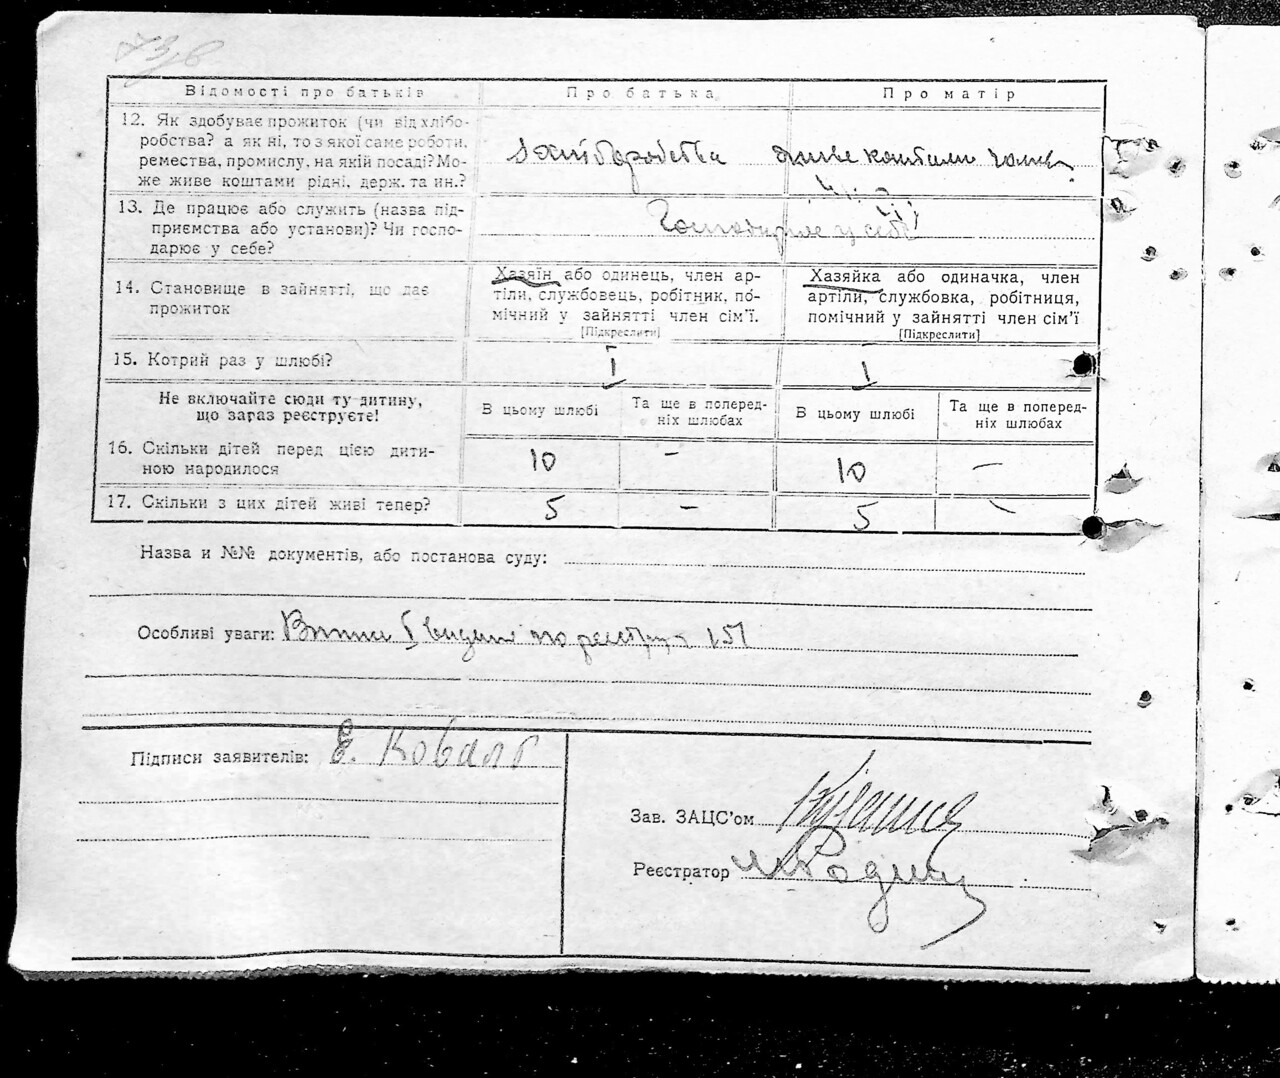 73в
Відомості про батьків
Про батька
Про матір
12. Як здобуває прожиток (чи від хлібо-
робства? а як ні, то з якої саме роботи,
ремества, промислу, на якій посаді? Мо-
же живе коштами рідні, держ. та ин.?
з хліборобства
живе коштами
13. Де працює або служить (назва під-
приємства або установи)? Чи госпо-
дарює у себе?
у себе
14. Становище в зайнятті, що дає
прожиток
Хазяїн або одинець, член ар-
тіли, службовець, робітник, по-
мічний у зайнятті член сім'ї.
[Підкреслити]
Хазяйка або одиначка, член
артіли, службовка, робітниця,
помічний у зайнятті член сім'ї
[Підкреслити]
15. Котрий раз у шлюбі?
I
I
Не включайте сюди ту дитину,
що зараз реєструєте!
В цьому шлюбі
Та ще в поперед-
ніх шлюбах
В цьому шлюбі
Та ще в поперед-
ніх шлюбах
16. Скільки дітей перед цією дити-
ною народилося
10
-
10
-
17. Скільки з цих дітей живі тепер?
5
-
5
-
Назва и №№ документів, або постанова суду:
Особливі уваги: по реєстру 151
Підписи заявителів: Є. Коваль
Зав. ЗАЦС'ом
Реєстратор